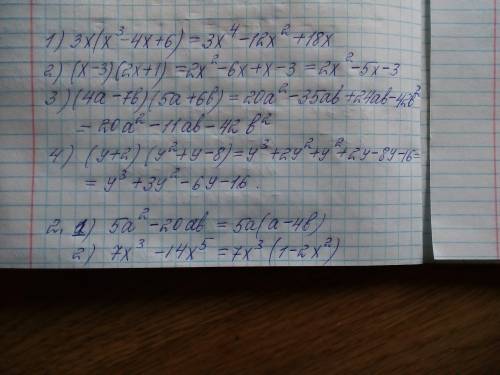 1) 3x(x³-4x+6) = 3x⁴-12x²+18x
2) (x-3)(2x+1) = 2x²-6x+x-3 = 2x²-5x-3
3) (4a-7b)(5a+6b) = 20a²-35ab+24ab-42b²
= 20a²-11ab-42b²
4) (y+2)(y²+y-8) = y³+2y²+y²+2y-8y-16=
= y³+3y²-6y-16.
2. 1) 5a²-20ab = 5a(a-4b)
2) 7x³-14x⁵ = 7x³(1-2x²)